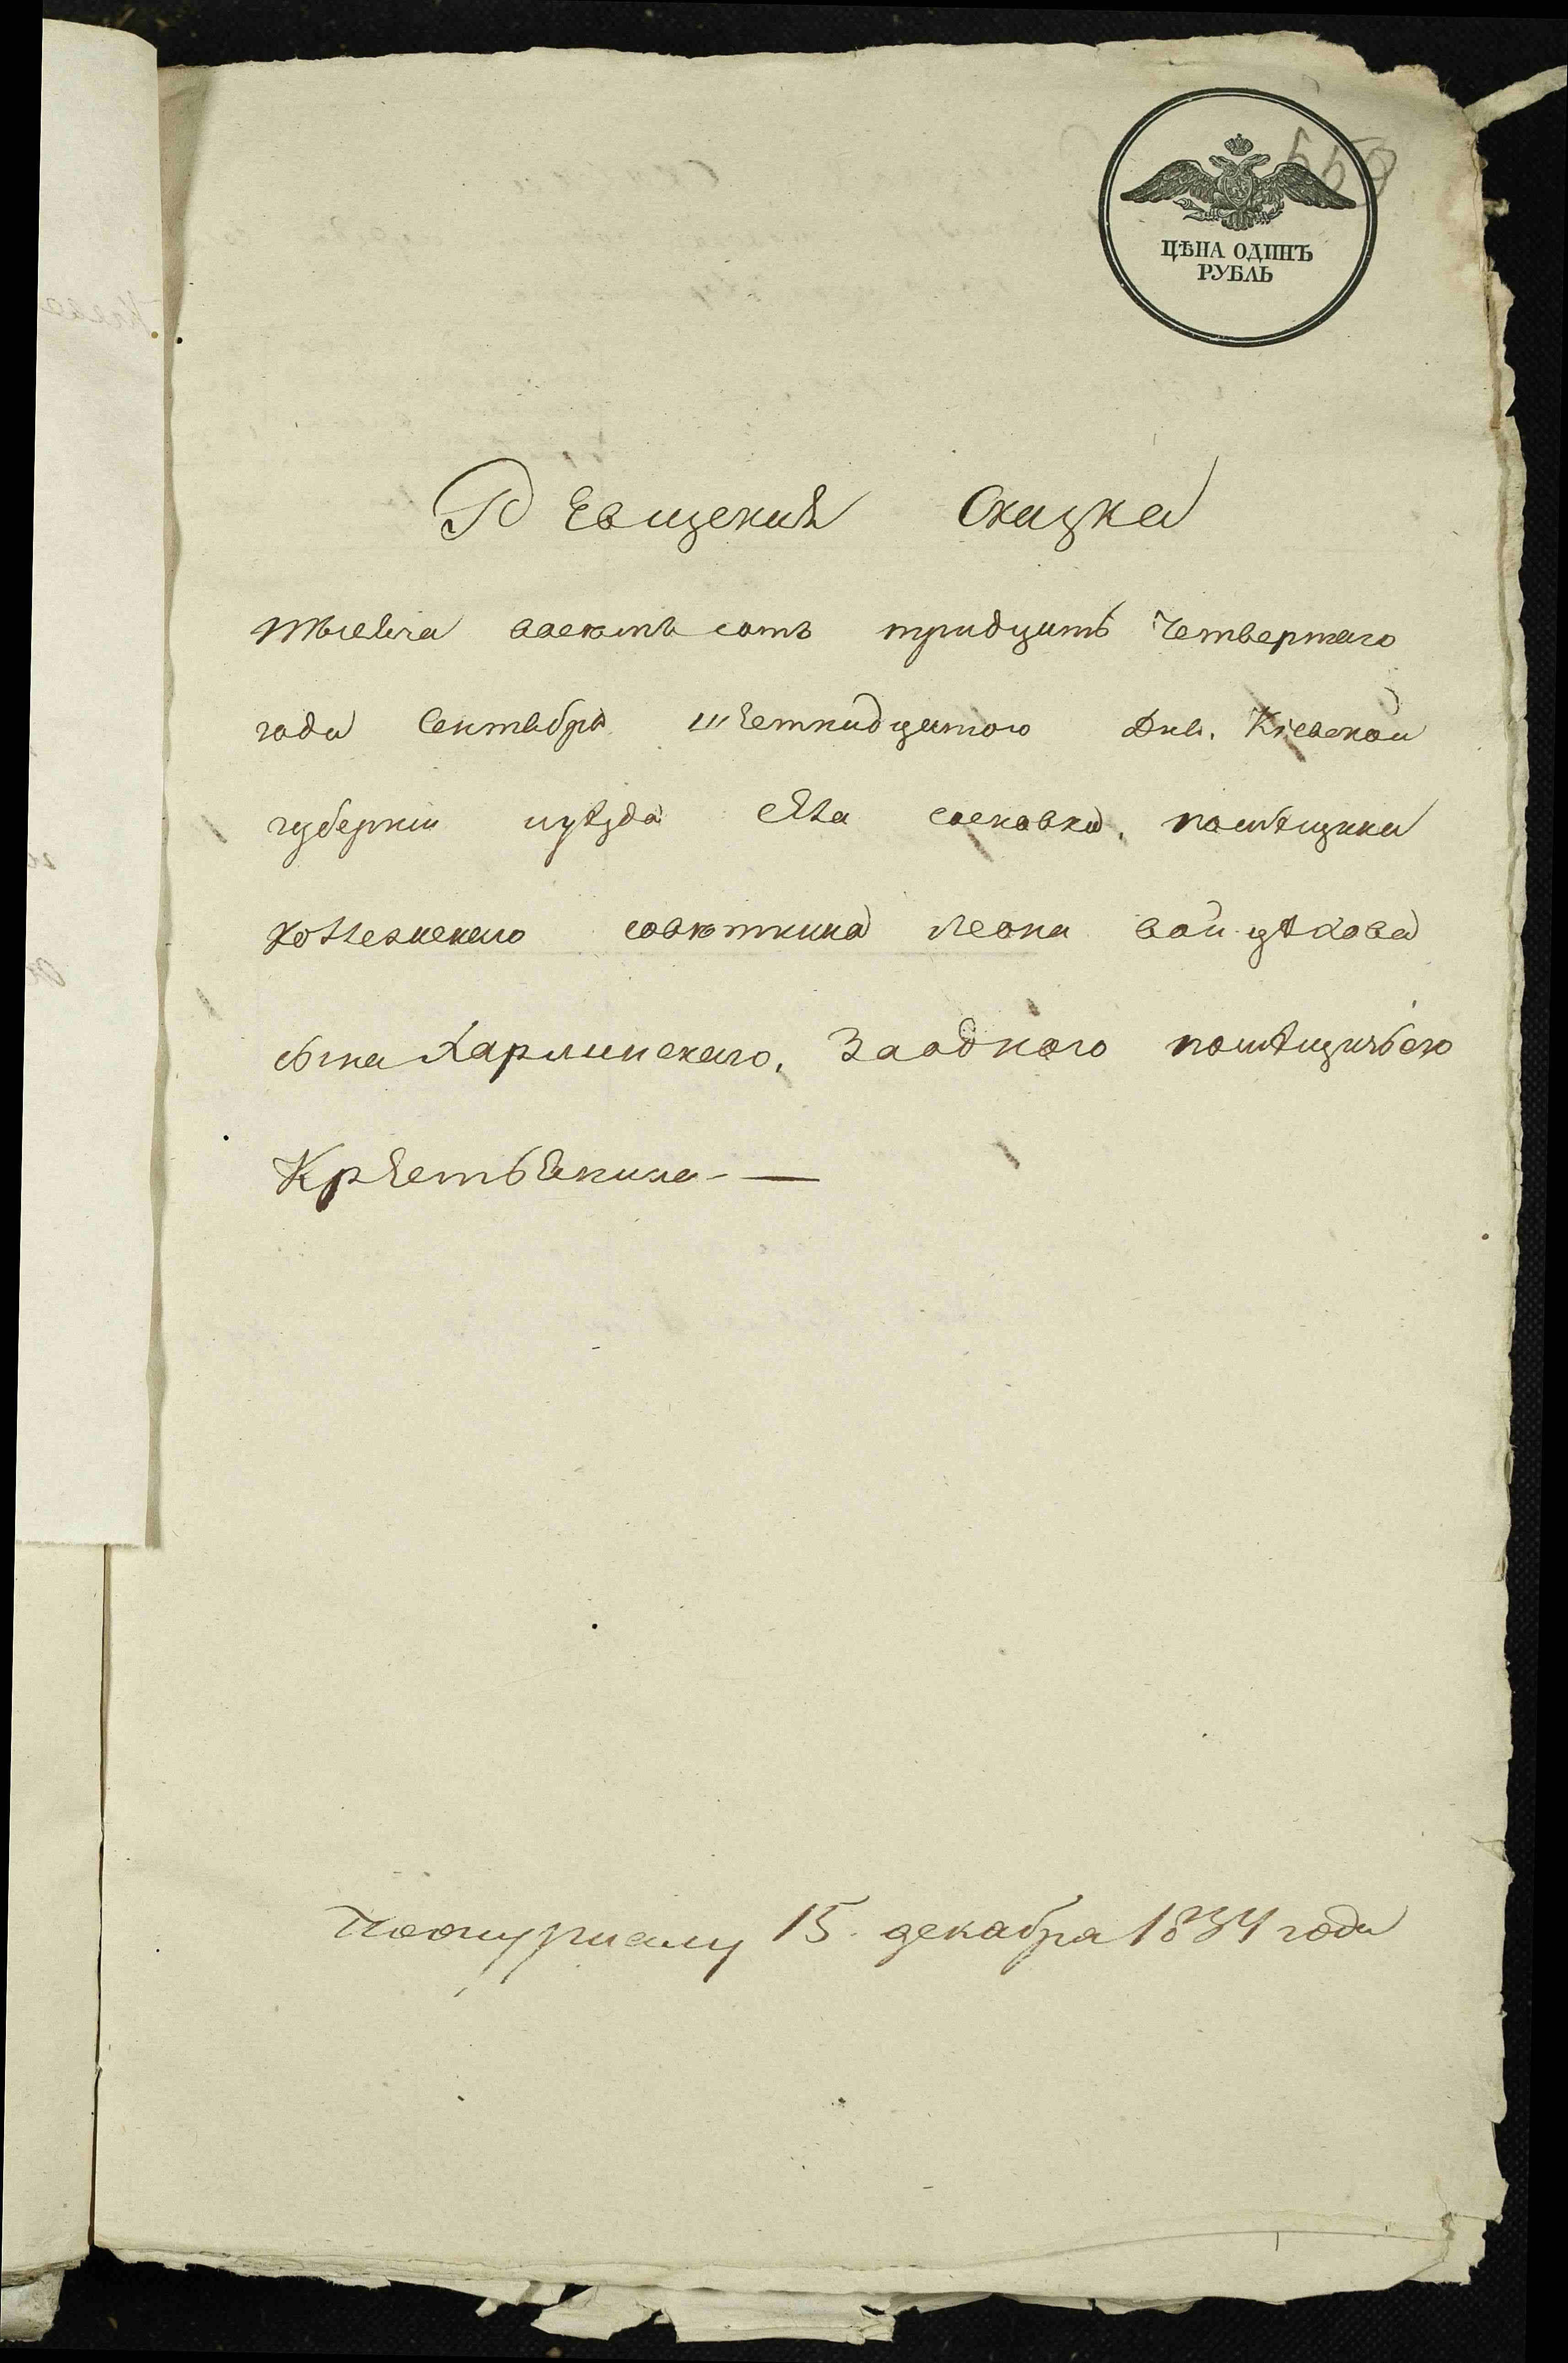 559
ЦѢНА ОДИНЪ
РУБЛЬ
Ревизская Сказка
тысяча восемь сотъ тридцать Четвертаго
года Сентября шестнадцатого Дня. Кіевской
губерніи уѣзда села сосковки, помѣщика
коллежскаго советника Леона войцѣхова
сына Харлинскаго, За одного помѣщичьего
Крестьянина —
По журналу 15. декабря 1834 года